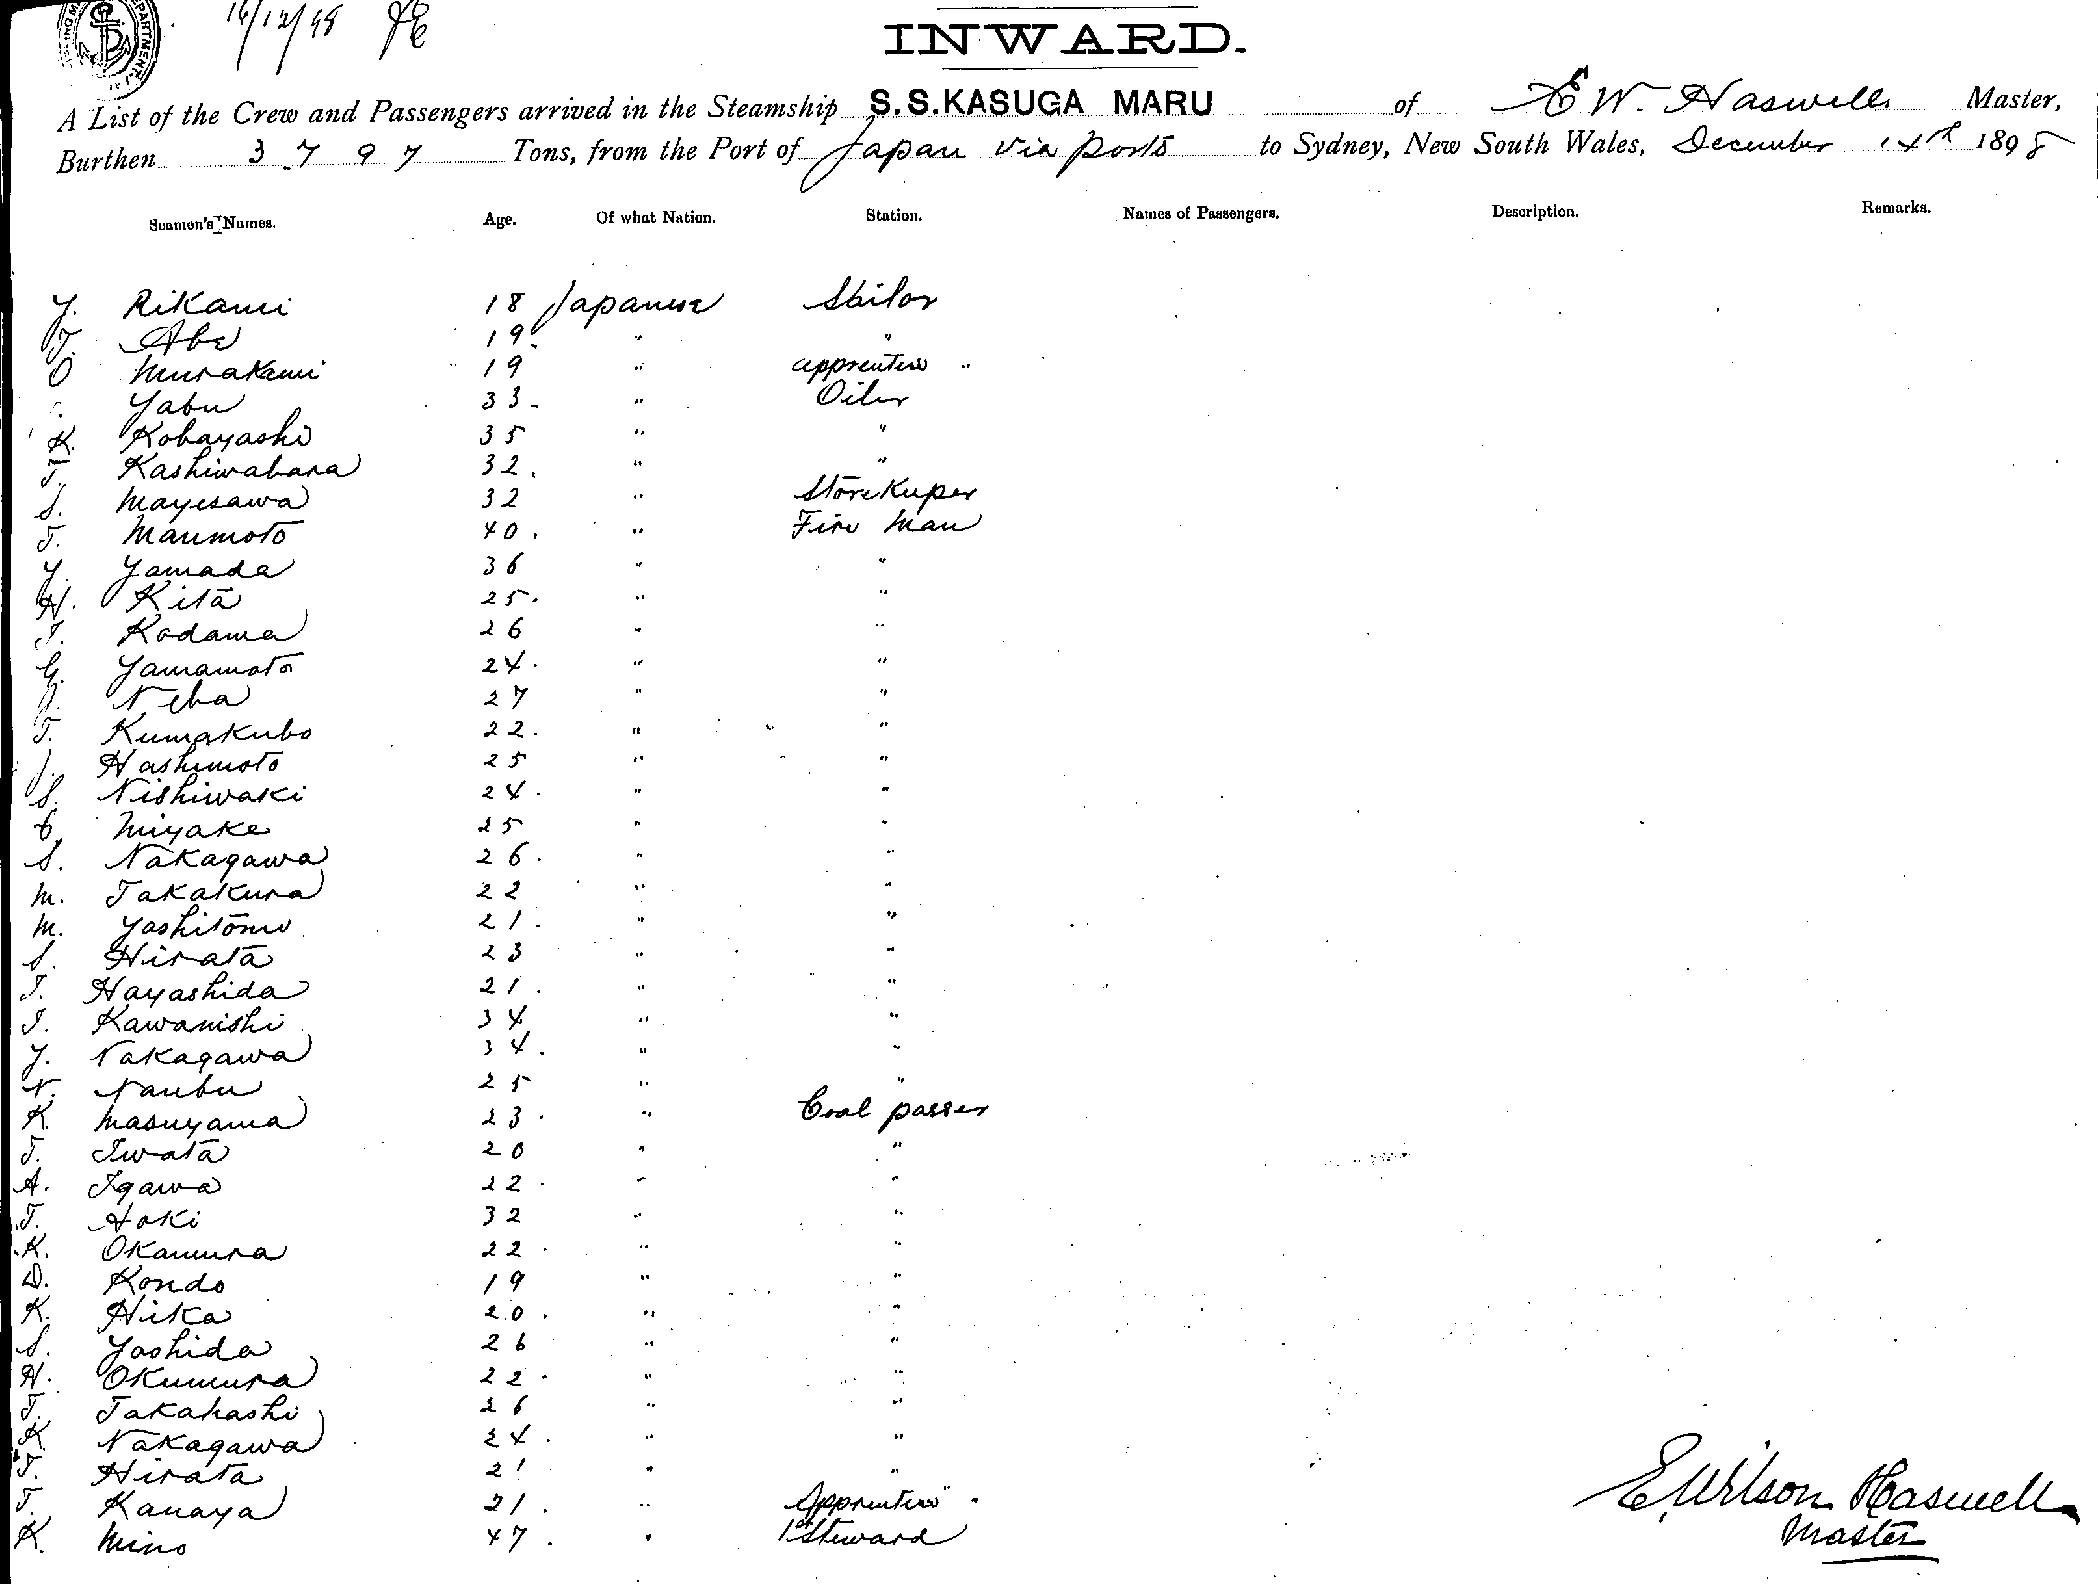 16/12/98
INWARD.
A List of the Crew and Passengers arrived in the Steamship S.S.KASUGA MARU of E W. Haswell Master,
Burthen 3797 Tons, from the Port of Japan via ports to Sydney, New South Wales, December 14th 1898
Seamen's Names. Age. Of what Nation. Station. Names of Passengers. Description. Remarks.
Y. Rikami 18 Japanese Sailor
T. Abe 19 " "
O Murakami 19 " apprentice "
Yabu 33 " Oiler
K. Kobayashi 35 " "
T. Kashiwabara 32 " "
S. Mayesawa 32 " Storekeper
T. Maumoto 40 " Fire Man
Y. Yamada 36 " "
H. Kita 25 " "
T. Kodama 26 " "
G. Yamamoto 24 " "
Neba 27 " "
T. Kumakubo 22 " "
J. Hashimoto 25 " "
S. Nishiwaki 24 " "
C. Miyake 25 " "
S. Nakagawa 26 " "
M. Takakura 22 " "
M. Yoshitomi 21 " "
S. Hirata 23 " "
T. Hayashida 21 " "
T. Kawanishi 34 " "
Y. Nakagawa 34 " "
N. Nanbu 25 " "
K. Masuyama 23 " Coal passer
T. Iwata 20 " "
A. Igawa 22 " "
T. Aoki 32 " "
K. Okamura 22 " "
D. Kondo 19 " "
K. Hika 20 " "
S. Yoshida 26 " "
H. Okumura 22 " "
T. Takahashi 26 " "
K Nakagawa 24 " "
T. Hirata 21 " "
T. Kanaya 21 " Apprentice "
K. Mino 47 " 1st Steward
E. Wilson Haswell
Master